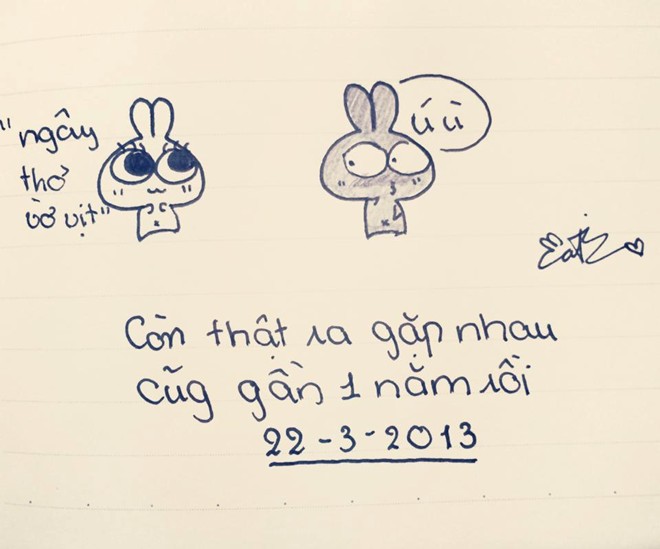 "ngây
thơ
vờ vịt"
úù
Còn thật ra gặp nhau
cũg gần 1 năm rồi
22-3-2013